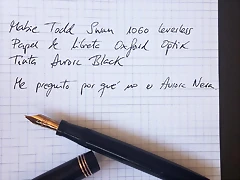 Mabie Todd Swan 1060 Leverless
Papel de Libreta Oxford Optik
Tinta Aurora Black
Me pregunto por qué no es Aurora Nera